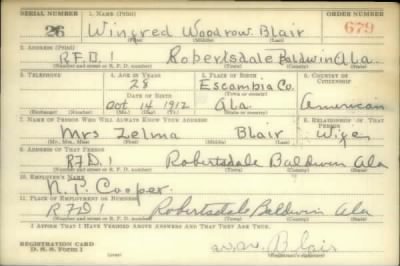 SERIAL NUMBER 1. NAME (Print) ORDER NUMBER
26 Wingred Woodrow Blair 679
(First) (Middle) (Last)
2. ADDRESS (Print)
R.F.D. 1 Robertsdale Baldwin Ala.
(Number and street or R. F. D. number) (Town) (County) (State)
3. TELEPHONE 4. AGE IN YEARS 5. PLACE OF BIRTH 6. COUNTRY OF CITIZENSHIP
28 Escambia Co.
DATE OF BIRTH (Town or county)
Oct 14 1912 Ala. American
(Exchange) (Number) (Mo.) (Day) (Yr.) (State or country)
7. NAME OF PERSON WHO WILL ALWAYS KNOW YOUR ADDRESS 8. RELATIONSHIP OF THAT PERSON
Mrs Zelma Blair Wife
(Mr., Mrs., Miss) (First) (Middle) (Last)
9. ADDRESS OF THAT PERSON
RFD. 1 Robertsdale Baldwin Ala
(Number and street or R. F. D. number) (Town) (County) (State)
10. EMPLOYER'S NAME
N. P. Cooper
11. PLACE OF EMPLOYMENT OR BUSINESS
RFD 1 Robertsdale Baldwin Ala
(Number and street or R. F. D. number) (Town) (County) (State)
I AFFIRM THAT I HAVE VERIFIED ABOVE ANSWERS AND THAT THEY ARE TRUE.
REGISTRATION CARD
D. S. S. Form 1 W. W. Blair
(Registrant's signature)